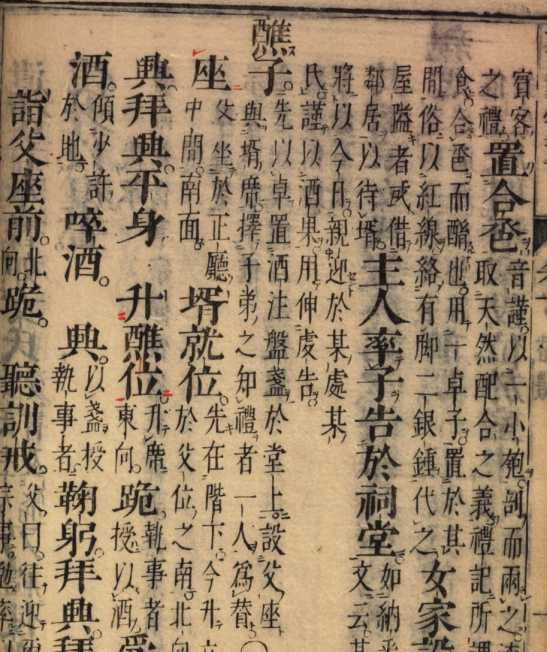 賓客
之禮
置合巹
音謹以一小匏剖而兩之
取天然配合之義禮記所謂
食合巹而酳也用一卓子置於其
間俗以紅線絡有脚二銀鍾代之
女家設
屋隘者或借
鄰居以待壻
主人率子告於祠堂
如納
文云某
將以今日親迎於某處某
氏謹以酒果用伸虔告
醮子
先以卓置酒注盤盞於堂上設父座
與壻席擇子弟之知禮者一人為賛〇
座
父坐於正廳
中間南面
壻就位
先在階下今升立
於父位之南北向
興拜興平身 升醮位
升席
東向
跪
執事者
授以酒
受
酒
傾少許
於地
啐酒 興
以盞授
執事者
鞠躬拜興拜
詣父座前
北
向
跪 聽訓戒
父曰往迎爾
宗事勉率